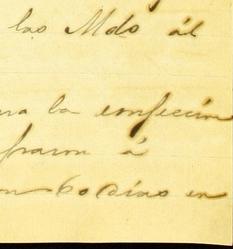 las Mds ál
ra la confección
fraron á
on 60 dias en